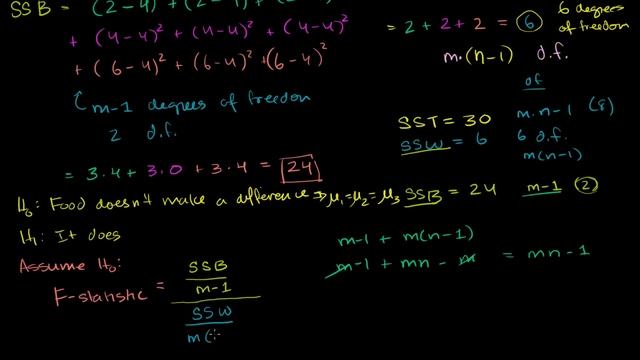 SSB = (2-4)² + (2-4)² + (2-4)²
+ (4-4)² + (4-4)² + (4-4)²
+ (6-4)² + (6-4)² + (6-4)²
m-1 degrees of freedom
2 d.f.
= 3·4 + 3·0 + 3·4 = 24
= 2 + 2 + 2 = 6
6 degrees of freedom
m·(n-1) d.f.
df
SST = 30 m·n-1 (8)
SSW = 6 6 d.f.
m(n-1)
H₀: Food doesn't make a difference ⇒ μ₁=μ₂=μ₃ SSB = 24 m-1 (2)
H₁: It does
m-1 + m(n-1)
m-1 + mn - m = mn-1
Assume H₀:
F-statistic = SSB
m-1
SSW
m(